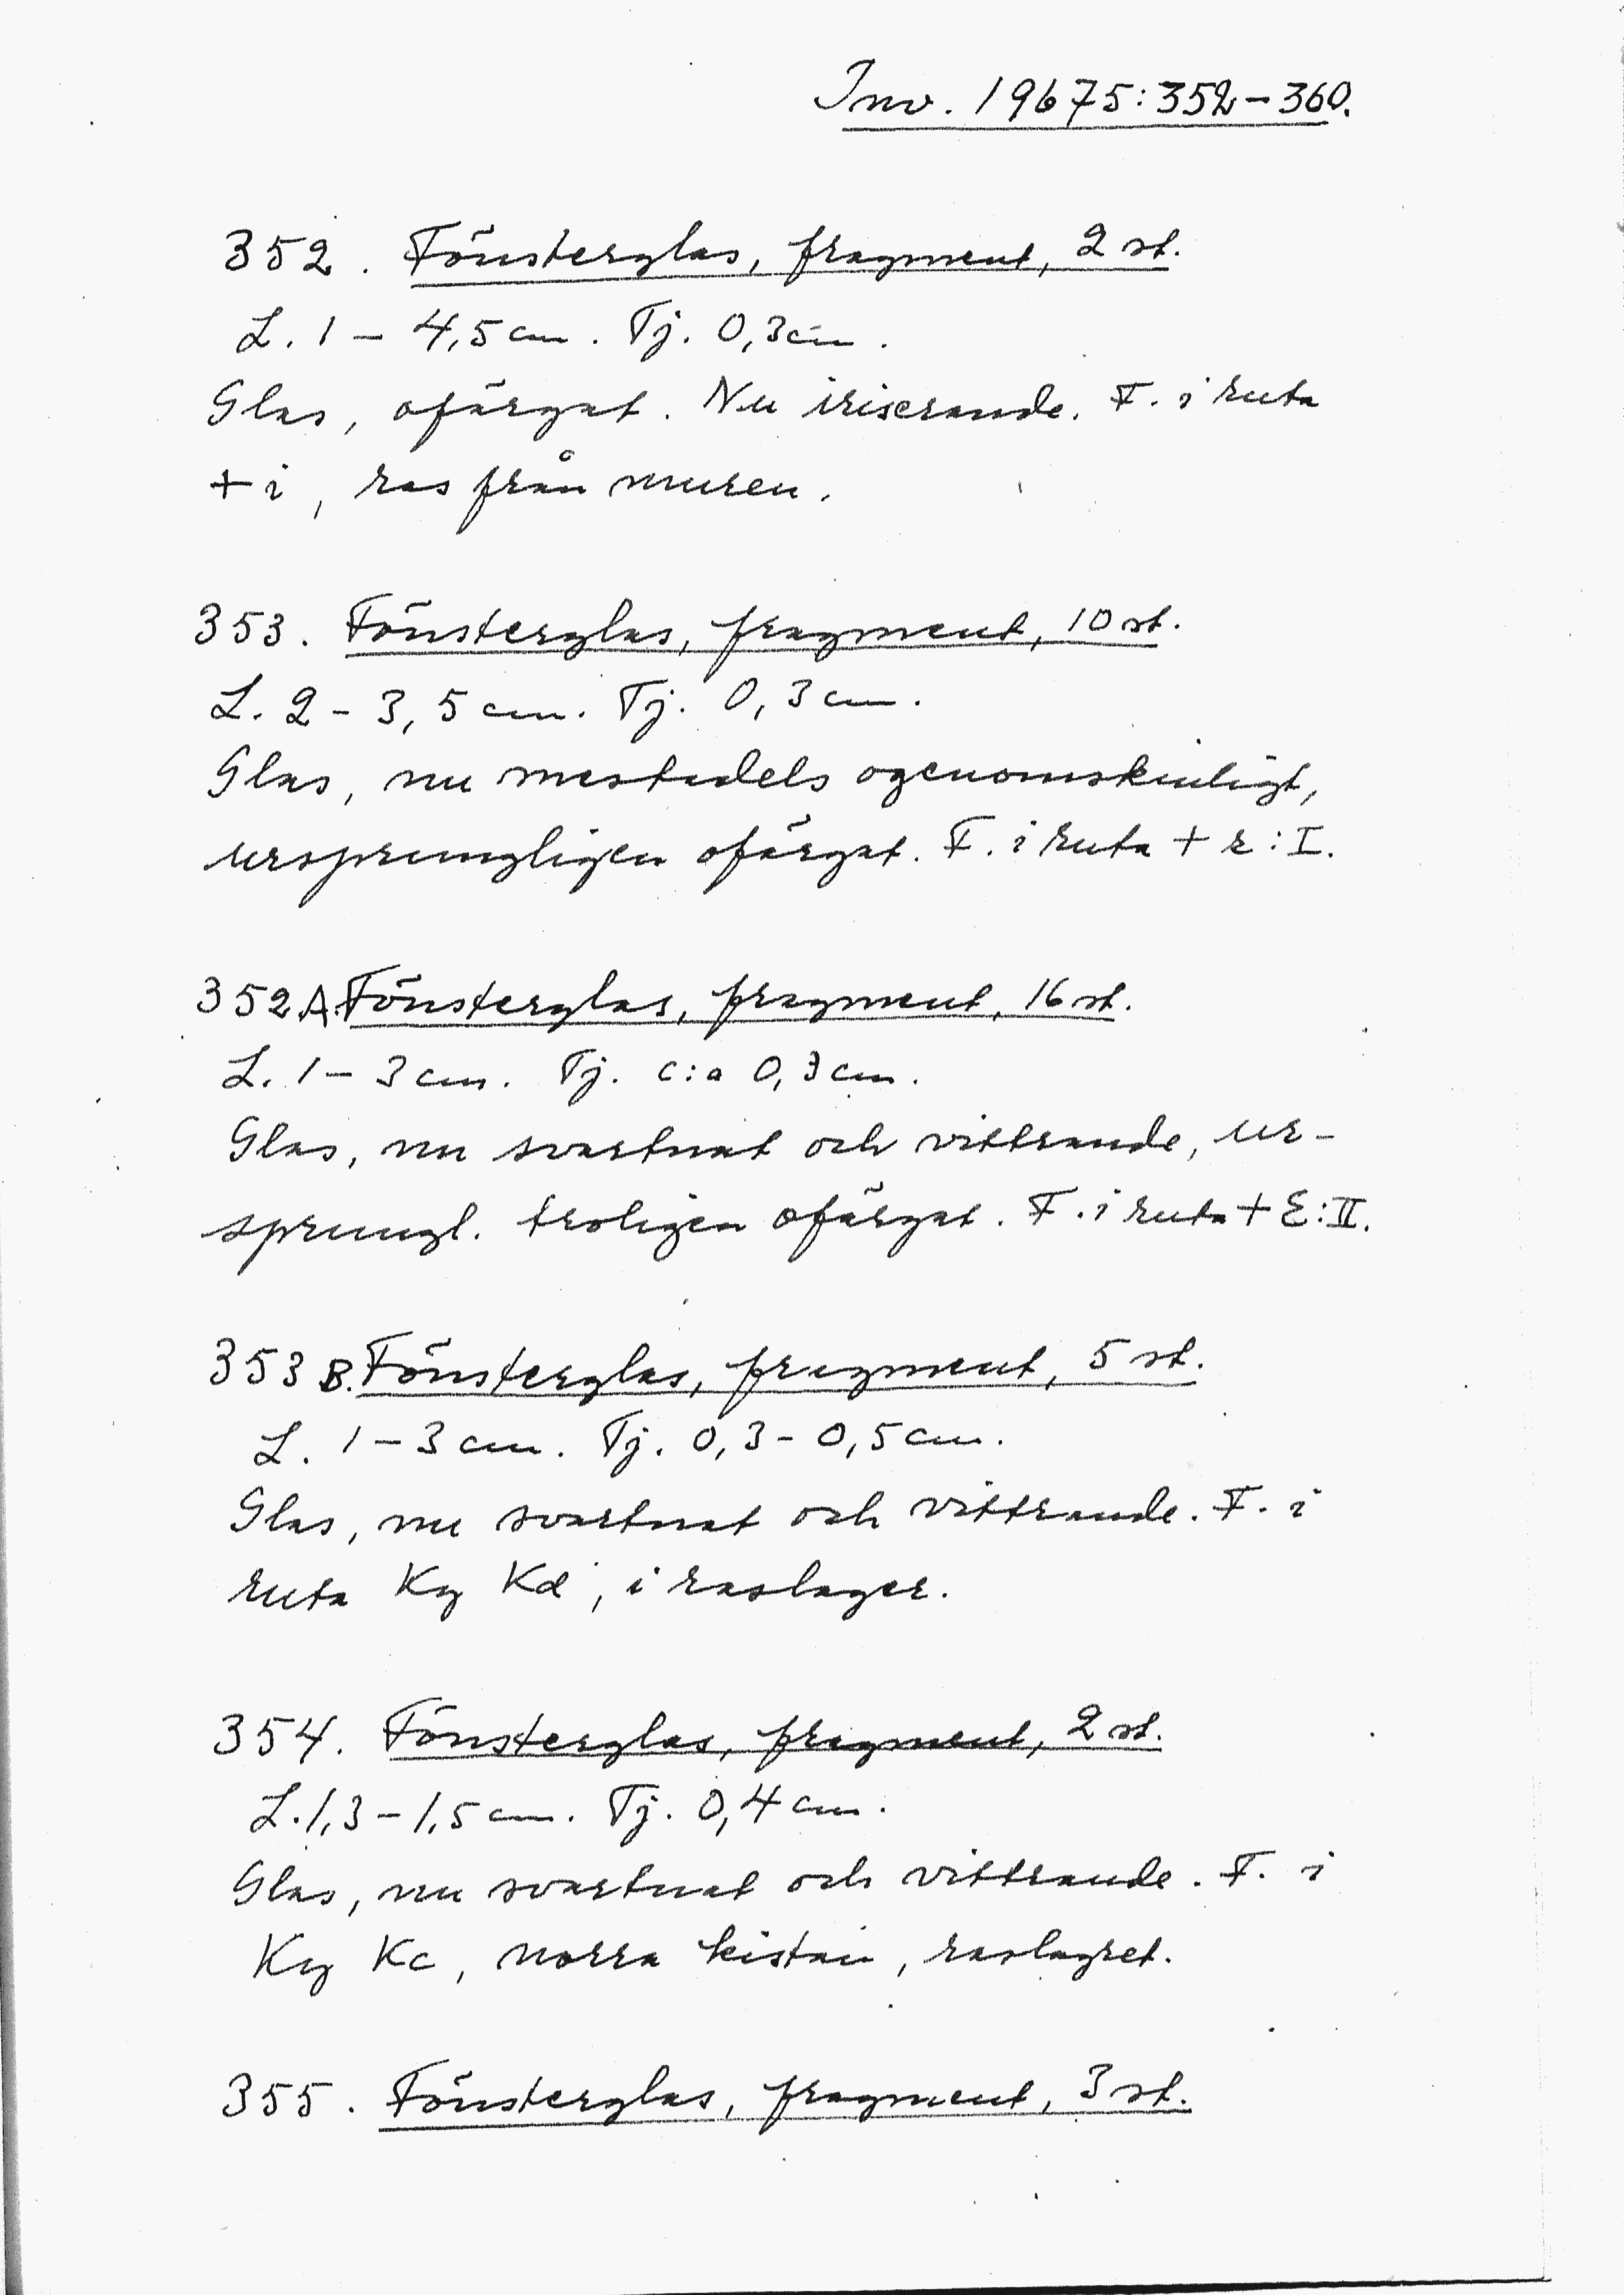 Inv. 19675:352-360.
352. Fönsterglas, fragment, 2 st.
L. 1 - 4,5 cm. Tj. 0,3 cm.
Glas, ofärgat. Nu iriserande. F. i ruta
+ i, ras från muren.
353. Fönsterglas, fragment, 10 st.
L. 2 - 3,5 cm. Tj. 0,3 cm.
Glas, nu mestadels ogenomskinligt,
ursprungligen ofärgat. F. i ruta + r:I.
352A. Fönsterglas, fragment, 16 st.
L. 1 - 3 cm. Tj. c:a 0,3 cm.
Glas, nu svartnat och vittrande, ur-
sprungl. troligen ofärgat. F. i ruta + E:II.
353B. Fönsterglas, fragment, 5 st.
L. 1 - 3 cm. Tj. 0,3 - 0,5 cm.
Glas, nu svartnat och vittrande. F. i
ruta Ky Kd, i raslager.
354. Fönsterglas, fragment, 2 st.
L. 1,3 - 1,5 cm. Tj. 0,4 cm.
Glas, nu svartnat och vittrande. F. i
Ky Kc, norra kistan, raslagret.
355. Fönsterglas, fragment, 3 st.